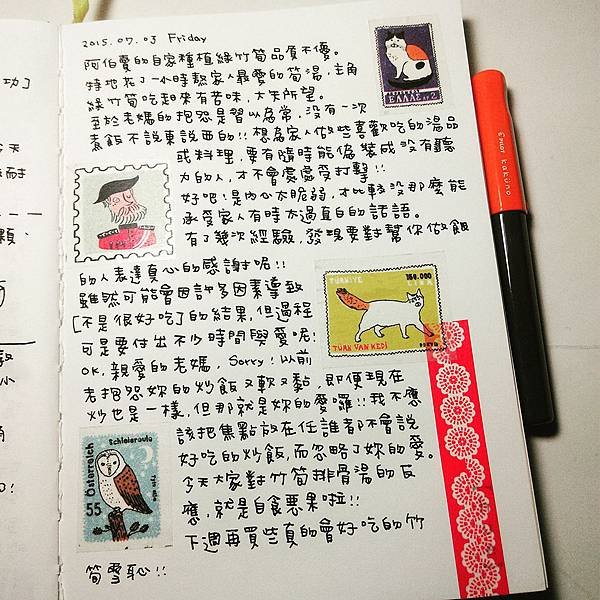 2015.07.03 Friday
阿伯賣的自家種植綠竹筍品質不優。
特地花了一小時熬家人最愛的筍湯,主角
綠竹筍吃起來有苦味,大失所望。
至於老媽的抱怨是習以為常,沒有一次
煮飯不說東說西的!!想為家人做些喜歡吃的湯品
或料理,要有隨時能偽裝成沒有聽
力的人,才不會處處受打擊!!
好吧!是內心太脆弱,才比較沒那麼能
承受家人有時太過直白的話語。
有了幾次經驗,發現要對幫你做飯
的人表達真心的感謝呢!!
雖然可能會因許多因素導致
[不是很好吃]的結果,但過程
可是要付出不少時間與愛呢!
OK,親愛的老媽,Sorry!以前
老抱怨妳的炒飯又軟又黏,即便現在
炒也是一樣,但那就是妳的愛囉!!我不應
該把焦點放在任誰都不會說
好吃的炒飯,而忽略了妳的愛。
今天大家對竹筍排骨湯的反
應,就是自食惡果啦!!
下週再買些真的會好吃的竹
筍雪恥!!
ΕΛΛΑΣ
TÜRKİYE
LIRA
TÜRK VAN KEDİ
Schleiereule
Österreich
55
PILOT kakuno
功]
天
而
顆、
小